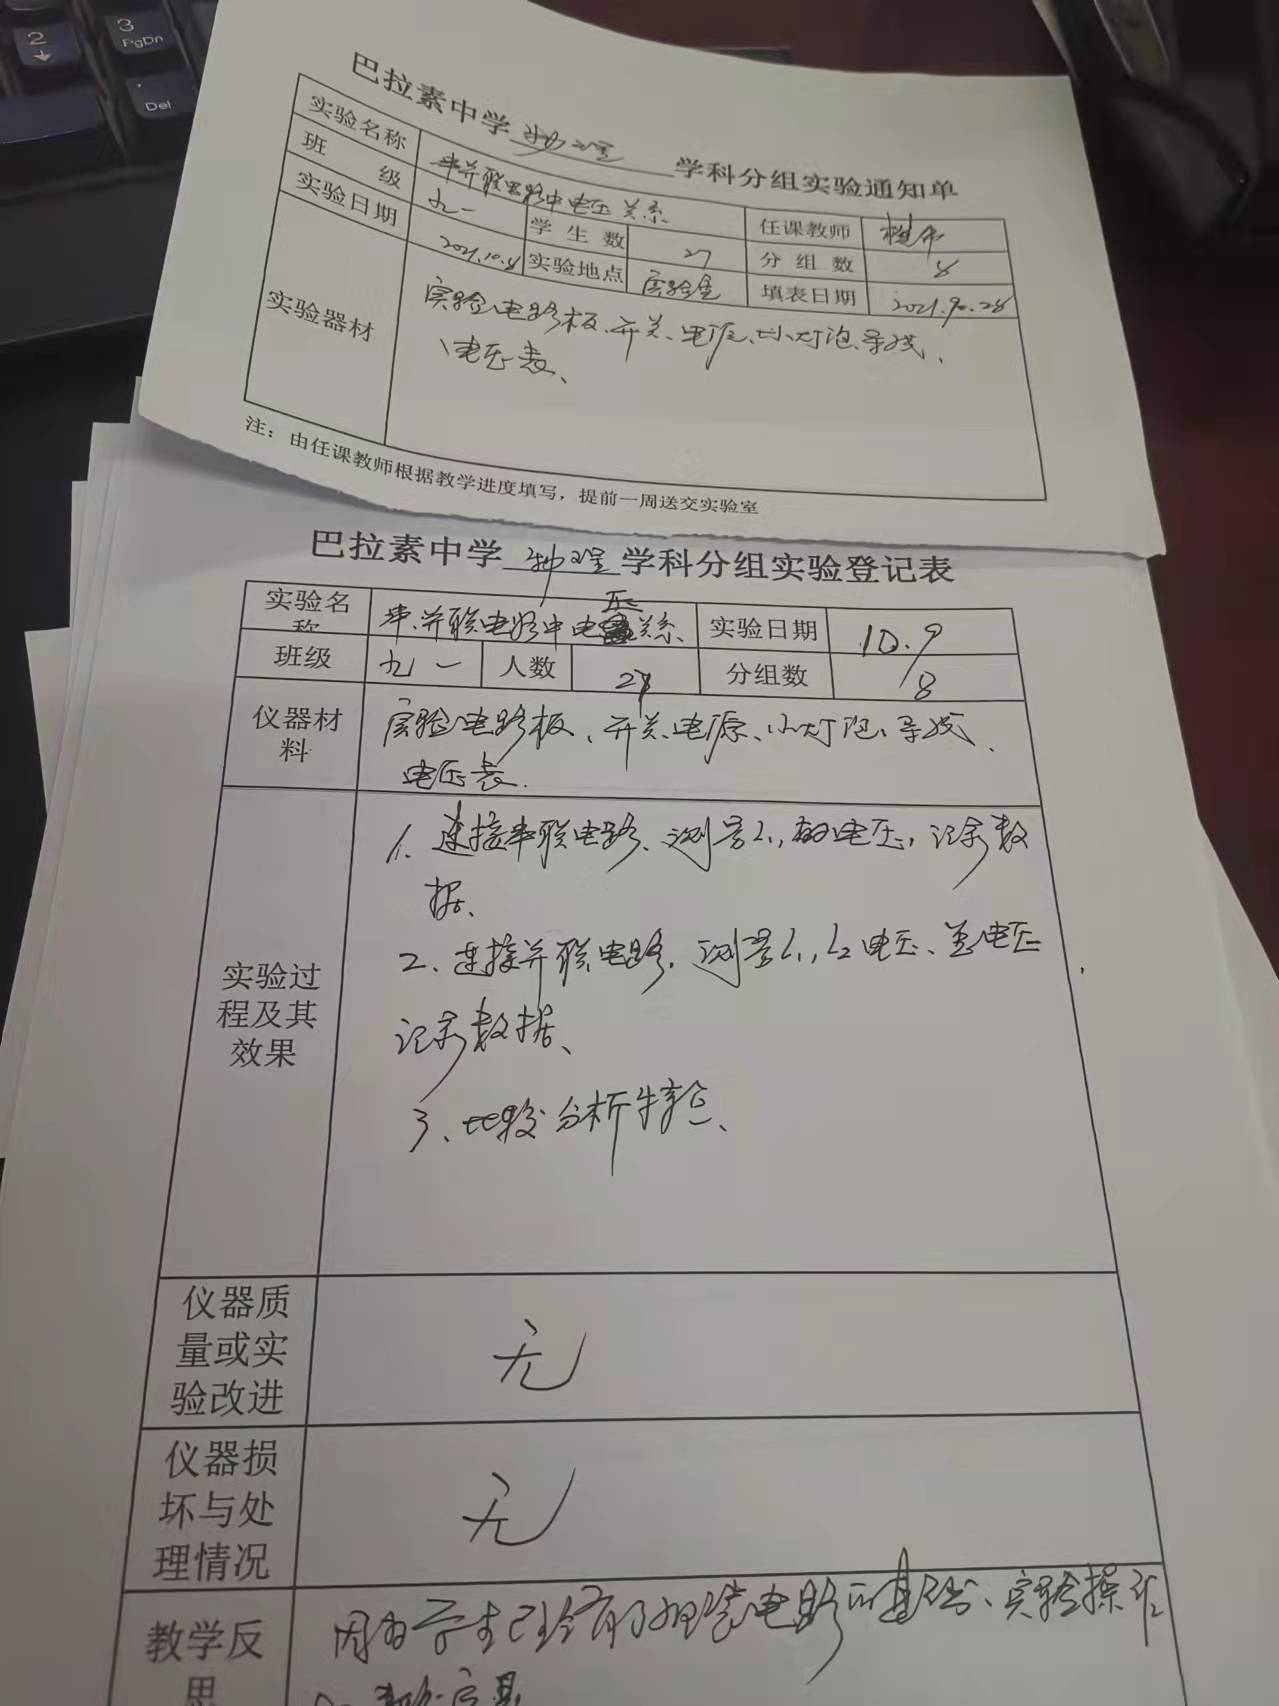 2
3
PgDn
Del
巴拉素中学物理学科分组实验通知单
实验名称 串并联电路中电压关系 任课教师
班级 九一 学生数 27 分组数 8
实验日期 2021.10.9 实验地点 实验室 填表日期
实验器材 实验电路板、开关、电源、小灯泡、导线、
电压表、
注：由任课教师根据教学进度填写，提前一周送交实验室
巴拉素中学物理学科分组实验登记表
实验名称 串、并联电路中电压关系 实验日期 10.9
班级 九一 人数 分组数 8
仪器材料 实验电路板、开关、电源、小灯泡、导线、
电压表.
实验过程及其效果
1、连接串联电路、测量L₁,的电压，记录数
据、
2、连接并联电路，测量L₁,L₂电压、总电压
记录数据、
3、比较分析
仪器质量或实验改进 无
仪器损坏与处理情况 无
教学反思 因为学生已经有了组装电路的基础、实验操作